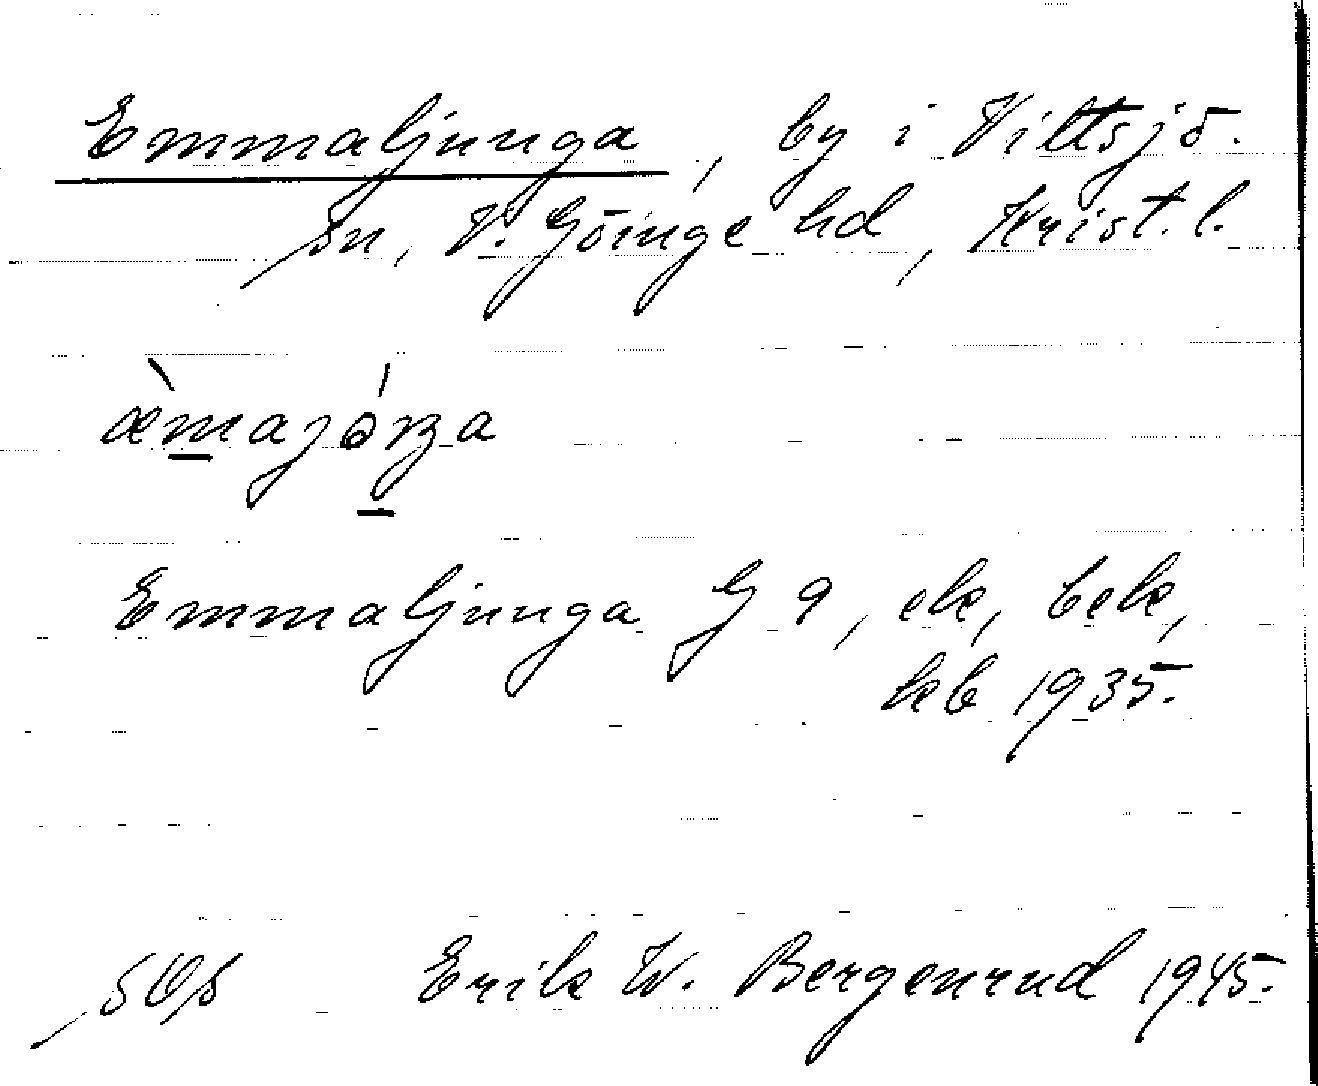 Emmaljunga, by i Vittsjö.
sn, V. Göinge hd, Krist. l.
Emmaljunga G 9, ek, bek,
kb 1935.
Erik W. Bergenrud 1945.